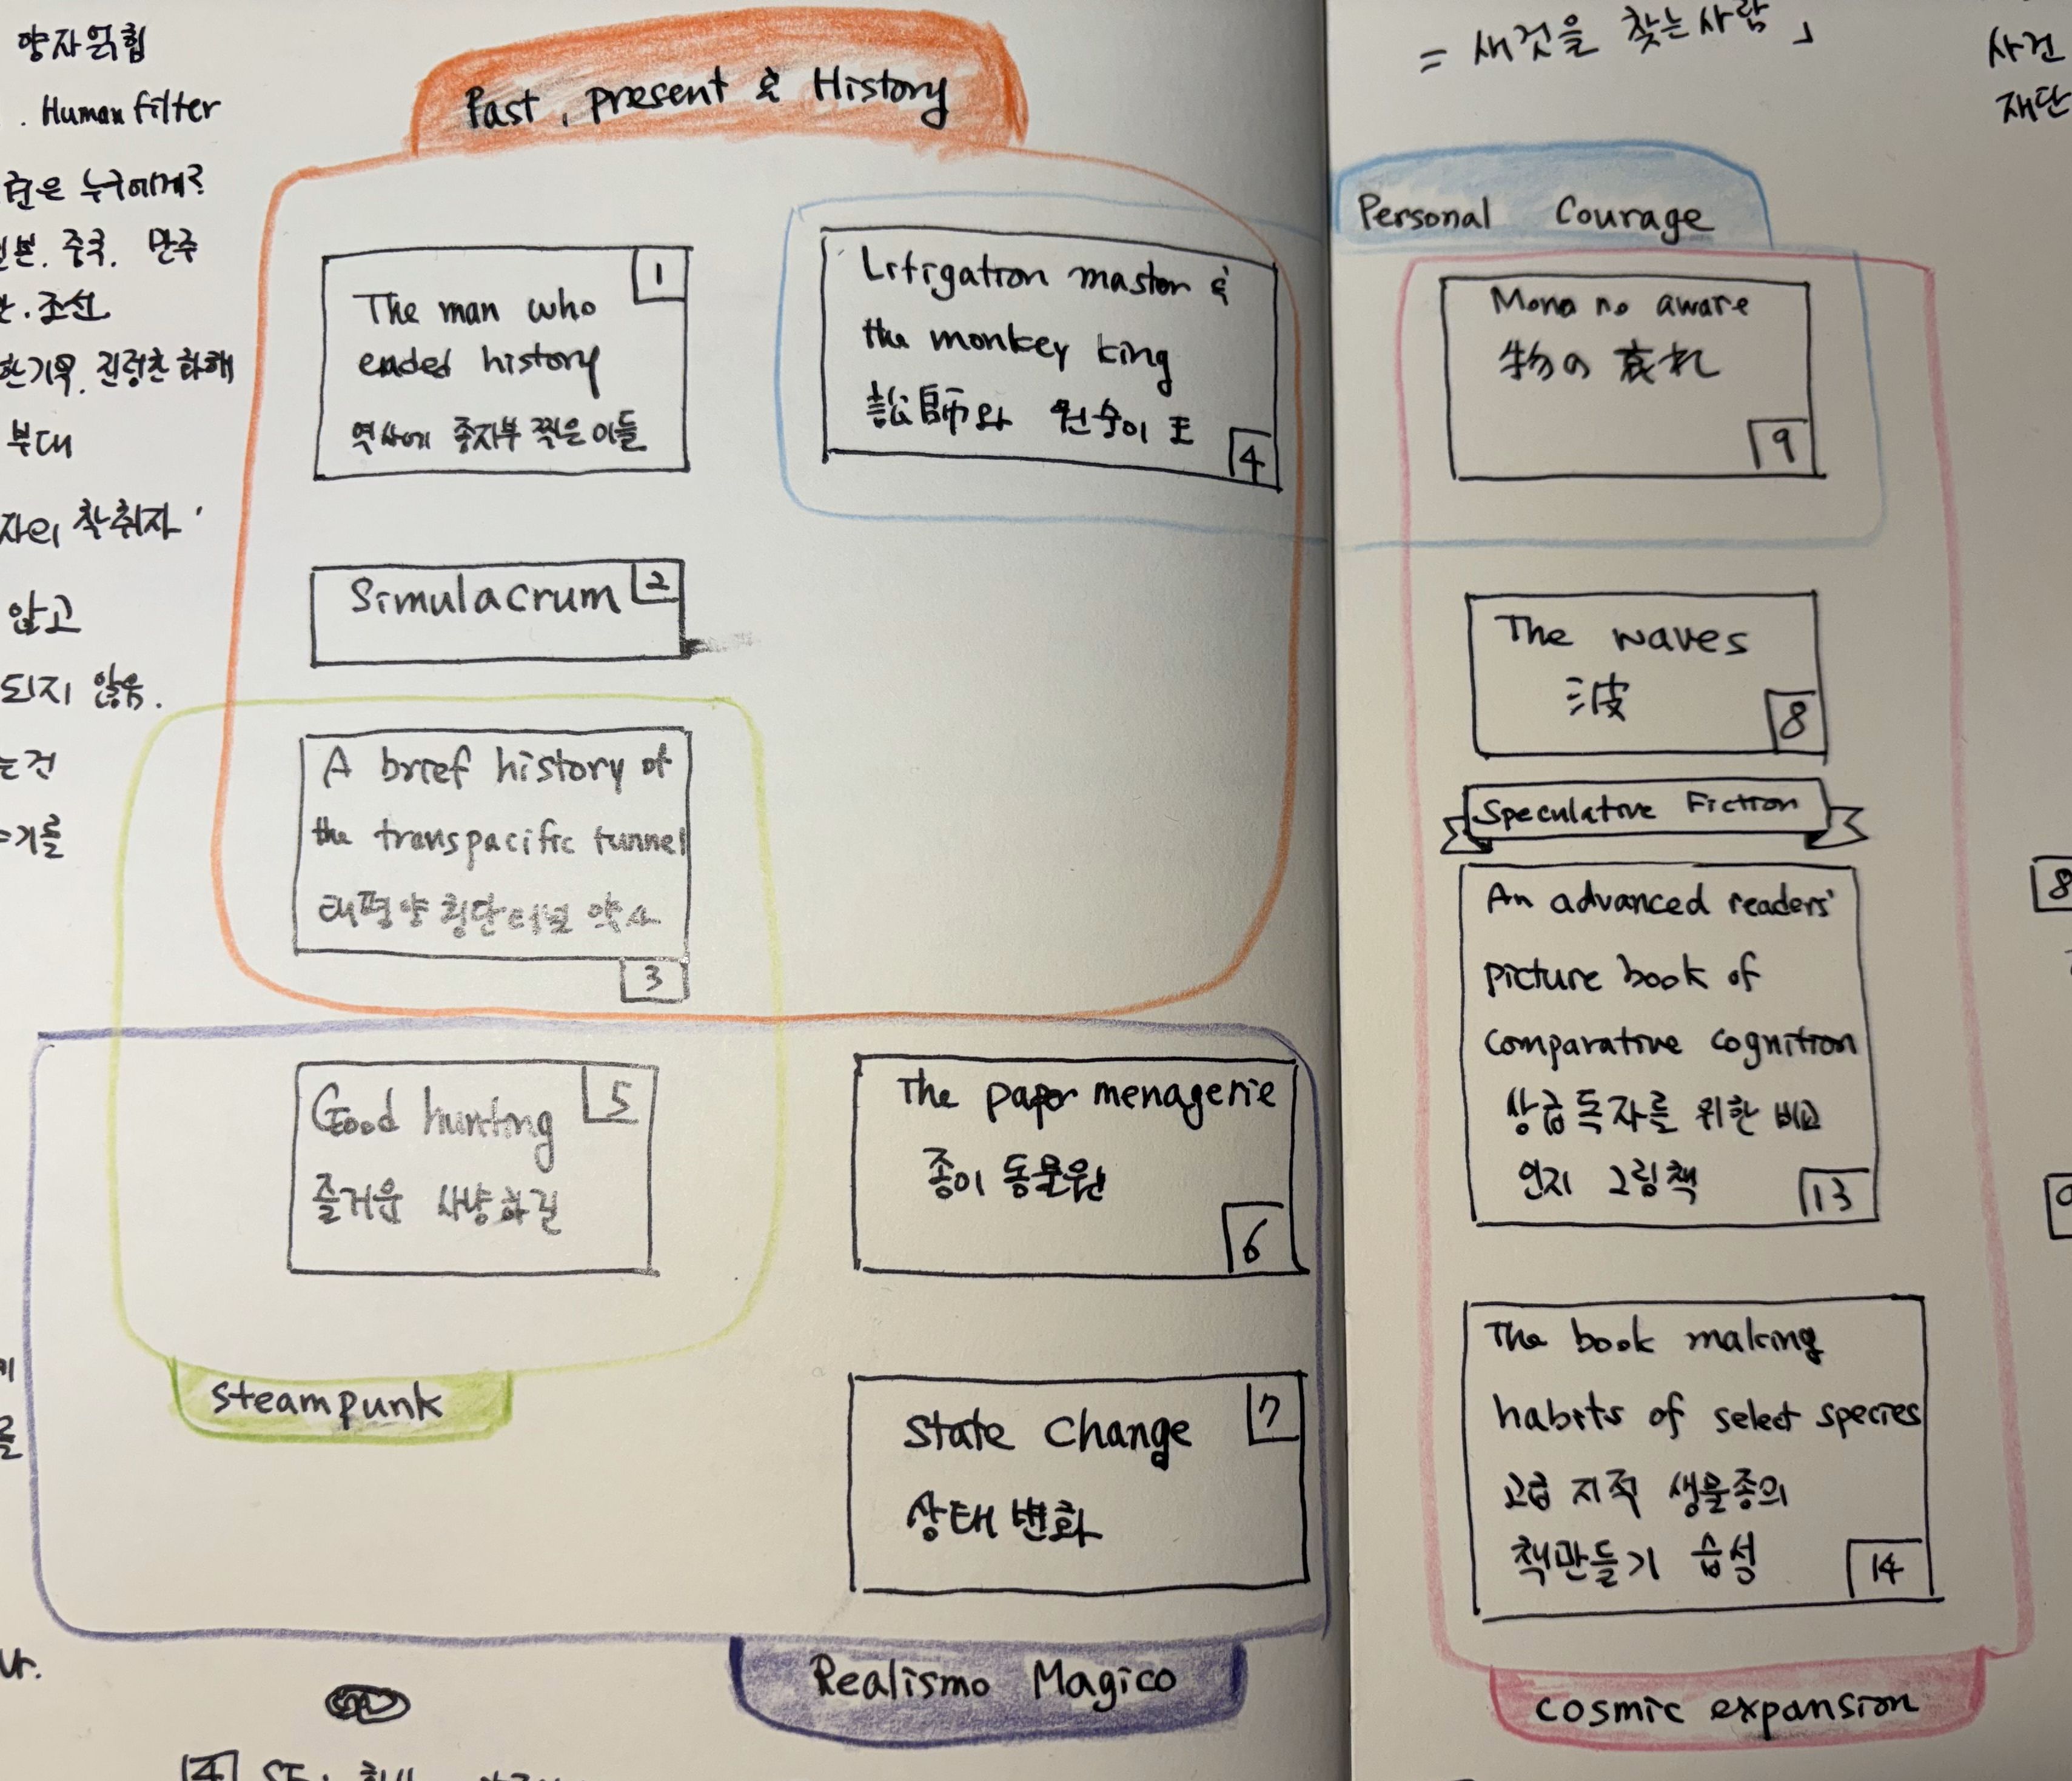 양자얽힘
. Human filter
은 누구에게?
일본. 중국. 만주
. 조선
한기억. 진정한 화해
부대
자의 착취자'
않고
되지 않음.
는건
기를
Past, present & History
1
The man who
ended history
역사에 종지부 찍은 이들
Litigation master &
the monkey king
訟師와 원숭이 王
4
Simulacrum
2
A brief history of
the transpacific tunnel
태평양 횡단터널 약사
3
Good hunting
5
즐거운 사냥하길
The paper menagerie
종이 동물원
6
steampunk
State Change
7
상태 변화
Realismo Magico
4
= 새것을 찾는 사람」
사건
재단
Personal Courage
Mono no aware
物の哀れ
9
The waves
波
8
Speculative Fiction
An advanced readers'
picture book of
comparative cognition
상급 독자를 위한 비교
인지 그림책
13
The book making
habits of select species
고급 지적 생물종의
책만들기 습성
14
cosmic expansion
8